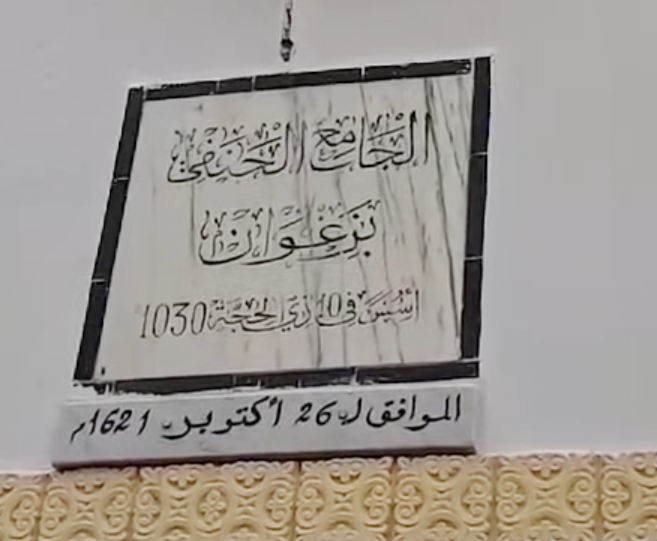 الجَامِعُ الحَنَفِي
بِزَغْوَان
أُسِّسَ في 10 ذي الحجَّة 1030
الموافق لـ 26 أكتوبر 1621م